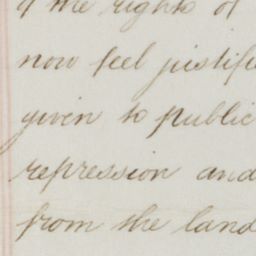 of the rights of
now feel justifi
given to public
repression and
from the land